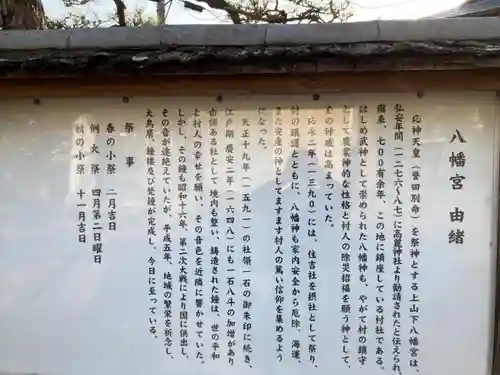 八幡宮 由緒
応神天皇(誉田別命)を祭神とする上山下八幡宮は、
弘安年間(一二七六~八七)に高麗神社より勧請されたと伝えられ、
爾来、七〇〇有余年、この地に鎮座している村社である。
はじめ武神として崇められた八幡神も、やがて村の鎮守
として農業神的な性格と村人の除災招福を願う神として、
その神威は高まっていた。
応永二年(一三九〇)には、住吉社を摂社として祭り、
村の鎮護とともに、八幡神も家内安全から厄除、海運、
また安産の神としてますます村人の篤い信仰を集めるよう
になった。
天正十九年(一五九一)の社領一石の御朱印に続き、
江戸期 慶安二年(一六四八)にも一石八斗の加増があり
由緒ある社として境内も整い、鋳造された鐘は、世の平和
と村人の幸せを願い、その音色を近隣に響かせていた。
しかし、その鐘も昭和十六年、第二次大戦により国に供出し、
その音が途絶えていたが、平成五年、地域の繁栄を祈念し、
大鳥居、鐘楼及び梵鐘が完成し、今日に至っている。
祭事
春の小祭 二月吉日
例大祭 四月第二日曜日
秋の小祭 十一月吉日